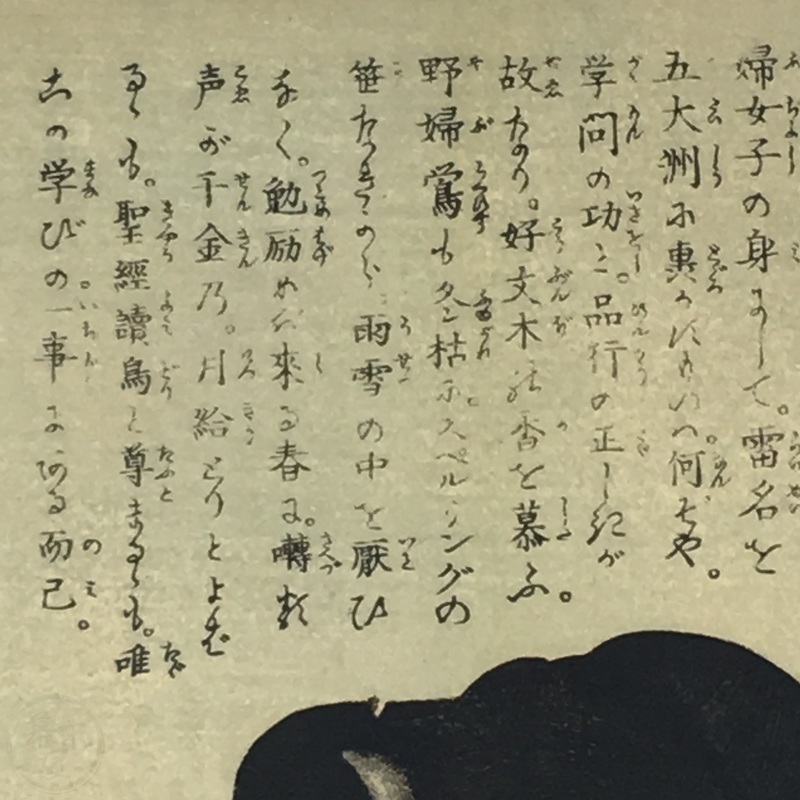 婦女子の身にして。雷名を
五大洲に轟かすものハ。何ぞや。
学問の功と。品行の正しきが
故なり。好文木の香を慕ふ。
野婦鴬も冬枯に。スペルリングの
笹なきのら。雨雪の中を厭ひ
なく。勉励めば来る春に。囀る
声が千金乃。月給とりとよば
るゝも。聖經讀鳥と尊まるゝも。唯
この学びの一事にある而已。